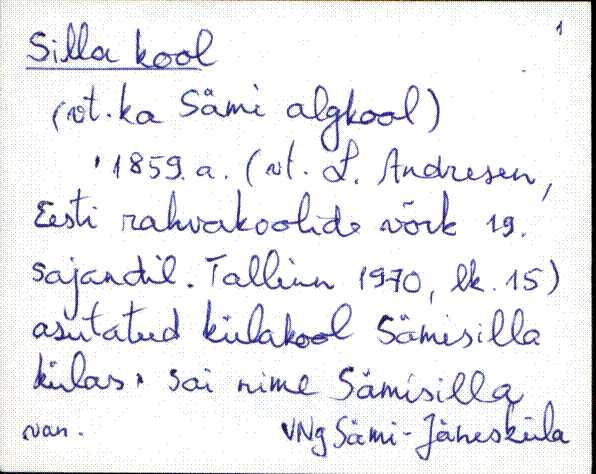 1
Silla kool
(vt. ka Sämi algkool)
1859. a. (vt. L. Andresen,
Eesti rahvakoolide võrk 19.
sajandil. Tallinn 1970, lk. 15)
asutatud külakool Sämisilla
külas, sai nime Sämisilla
van. VNg Sämi-Jäneskula